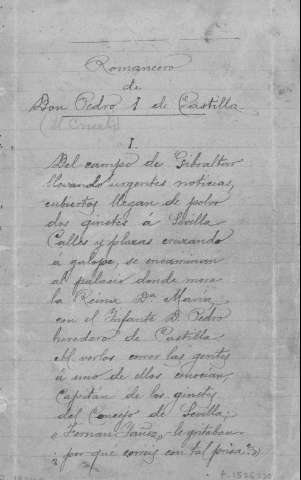 Romancero
de
Don Pedro I de Castilla
(El Cruel)
I.
Del campo de Gibraltar
llevando urgentes noticias,
cubiertos llegan de polvo
dos ginetes á Sevilla
Calles y plazas cruzando
á galope, se encaminan
al palacio donde mora
la Reina Dª María,
con el Infante D. Pedro
heredero de Castilla
Al verlos correr las gentes
á uno de ellos conocian,
Capitán de los ginetes
del Concejo de Sevilla;
"Fernan-Yañez" le gritaban
¿por que corris con tal prisa?"